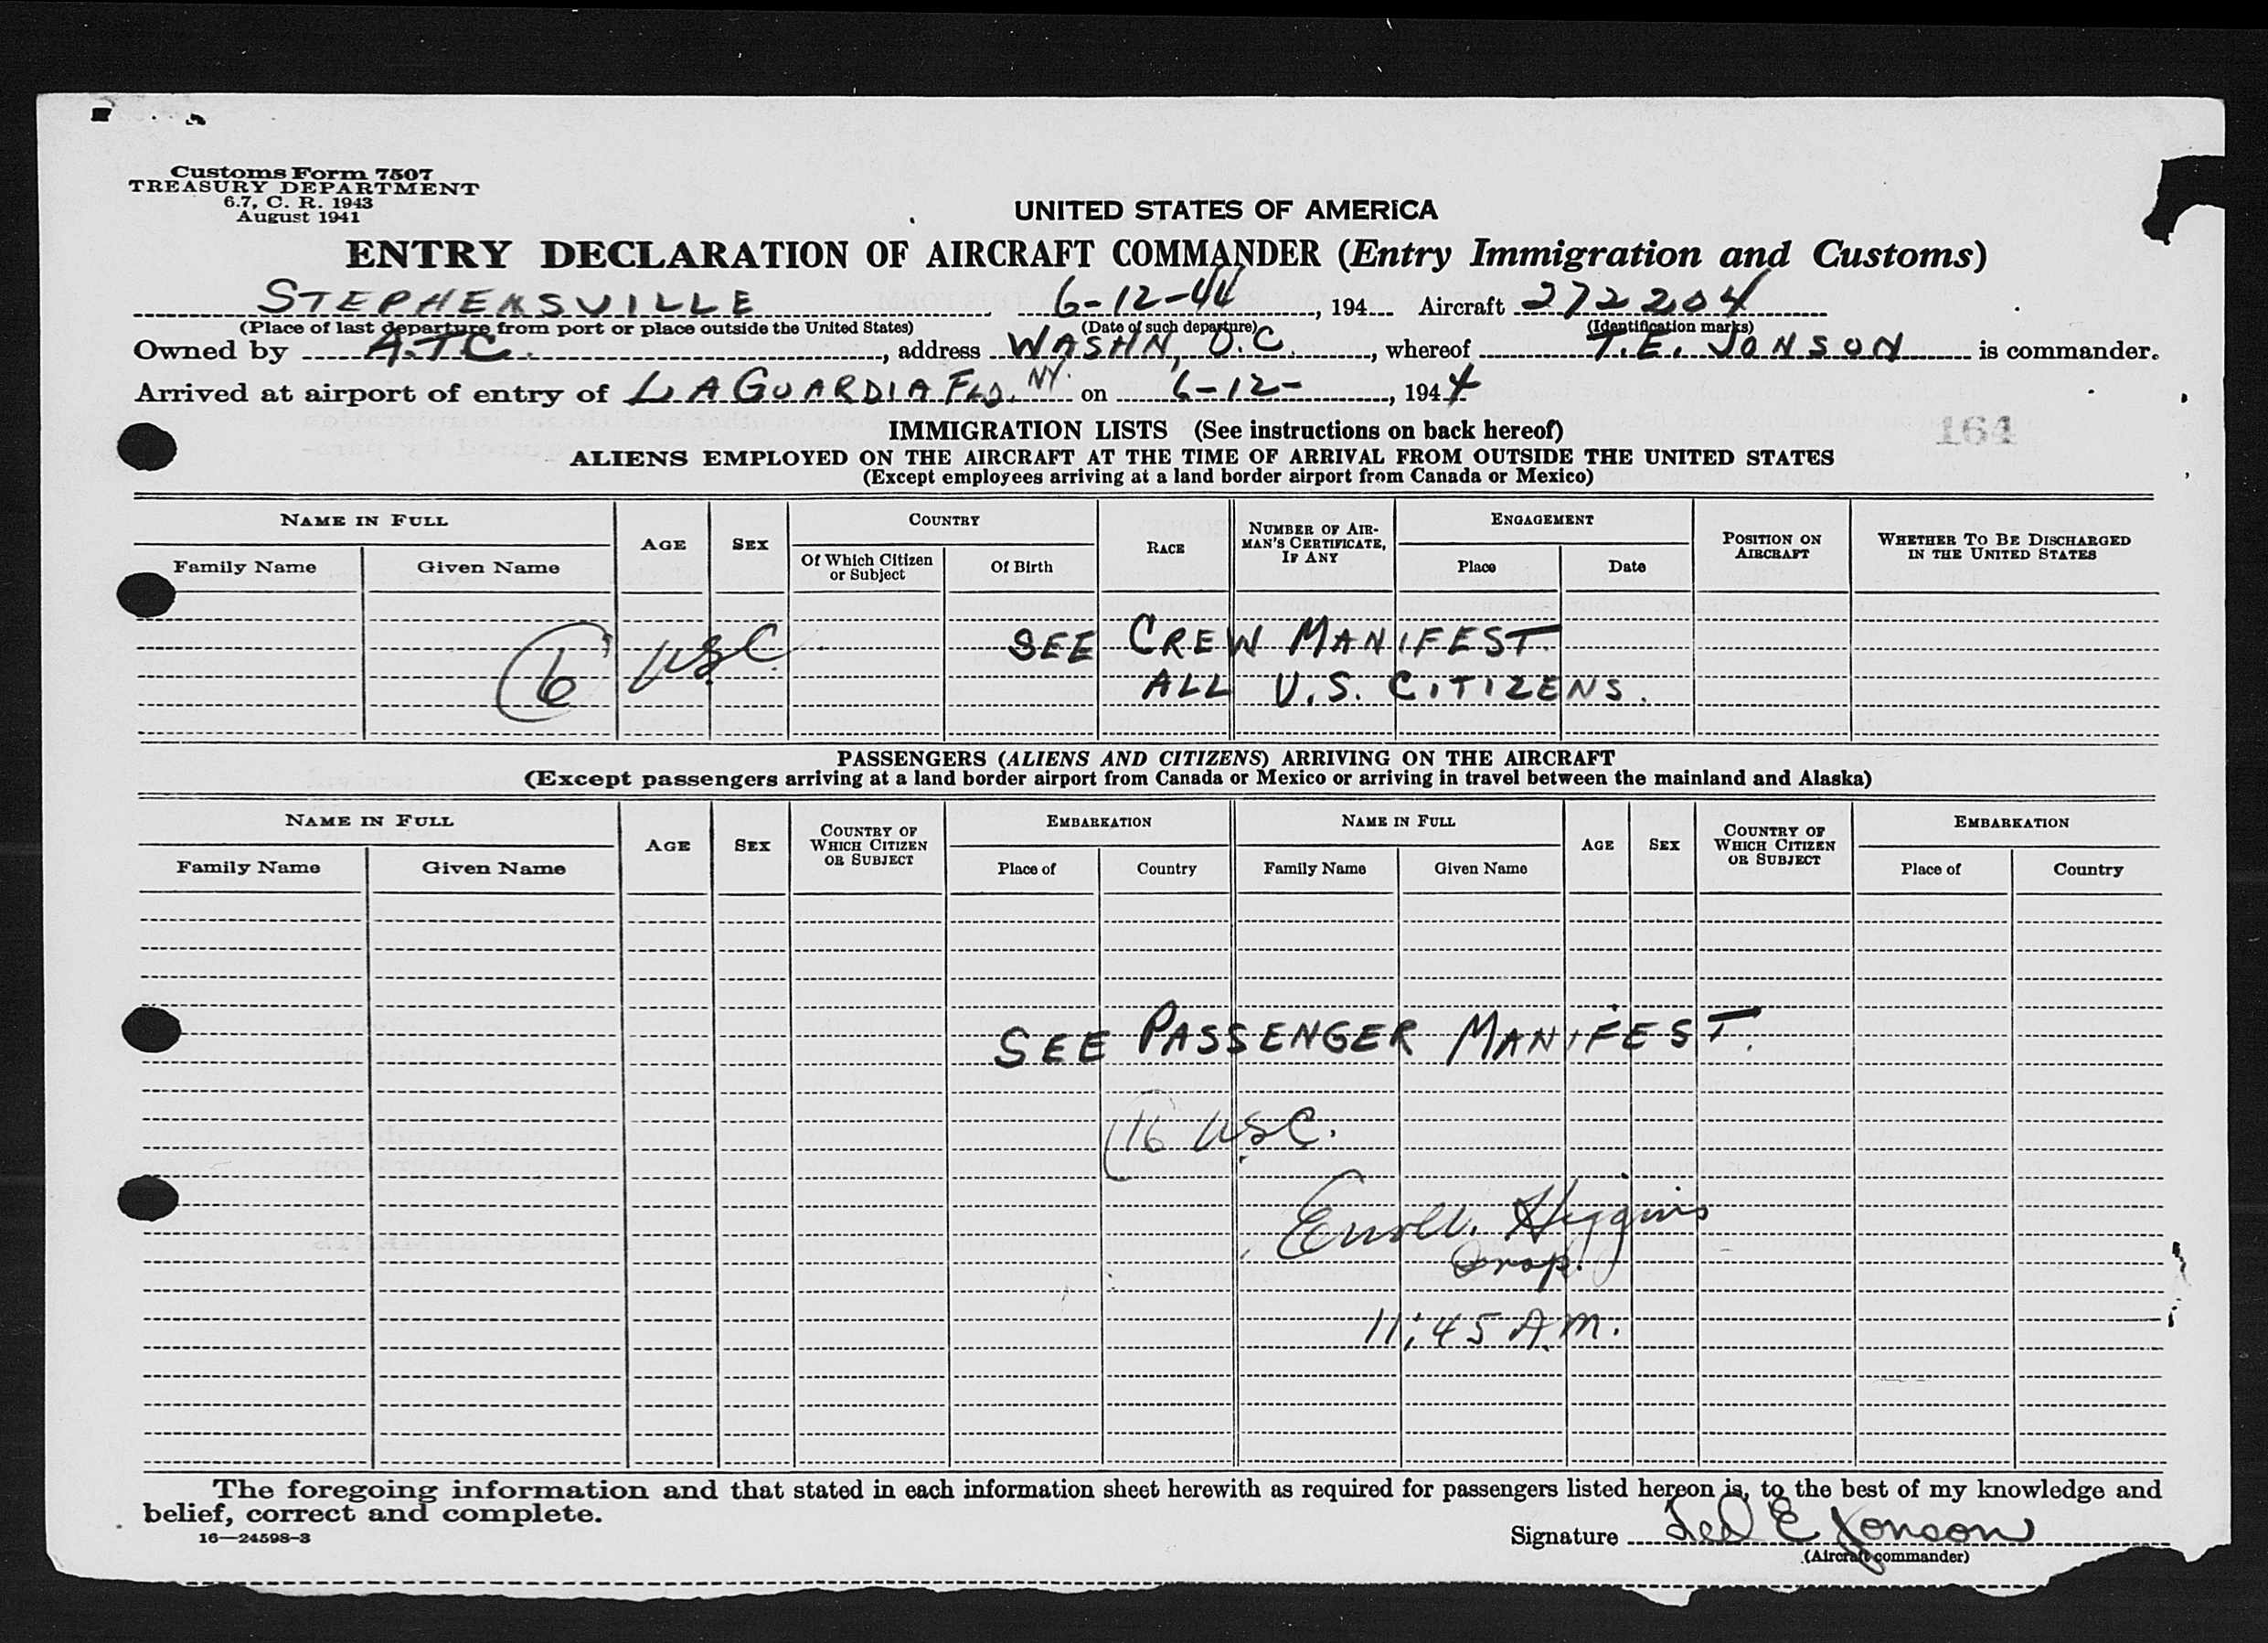 Customs Form 7507
TREASURY DEPARTMENT
6.7, C. R. 1943
August 1941
UNITED STATES OF AMERICA
ENTRY DECLARATION OF AIRCRAFT COMMANDER (Entry Immigration and Customs)
STEPHENSVILLE 6-12-44, 194 Aircraft 272204
(Place of last departure from port or place outside the United States) (Date of such departure) (Identification marks)
Owned by A.T.C., address WASHN, D.C., whereof T.E. JONSON is commander.
Arrived at airport of entry of LAGUARDIA FLD. NY. on 6-12-, 1944
164
IMMIGRATION LISTS (See instructions on back hereof)
ALIENS EMPLOYED ON THE AIRCRAFT AT THE TIME OF ARRIVAL FROM OUTSIDE THE UNITED STATES
(Except employees arriving at a land border airport from Canada or Mexico)
NAME IN FULL AGE SEX COUNTRY RACE NUMBER OF AIRMAN'S CERTIFICATE, IF ANY ENGAGEMENT POSITION ON AIRCRAFT WHETHER TO BE DISCHARGED IN THE UNITED STATES
Family Name Given Name Of Which Citizen or Subject Of Birth Place Date
6 USC SEE CREW MANIFEST.
ALL U.S. CITIZENS.
PASSENGERS (ALIENS AND CITIZENS) ARRIVING ON THE AIRCRAFT
(Except passengers arriving at a land border airport from Canada or Mexico or arriving in travel between the mainland and Alaska)
NAME IN FULL AGE SEX COUNTRY OF WHICH CITIZEN OR SUBJECT EMBARKATION NAME IN FULL AGE SEX COUNTRY OF WHICH CITIZEN OR SUBJECT EMBARKATION
Family Name Given Name Place of Country Family Name Given Name Place of Country
SEE PASSENGER MANIFEST.
16 USC.
Higgins
11:45 A.M.
The foregoing information and that stated in each information sheet herewith as required for passengers listed hereon is, to the best of my knowledge and
belief, correct and complete.
16—24598-3
Signature Ted E Jonson
(Aircraft commander)